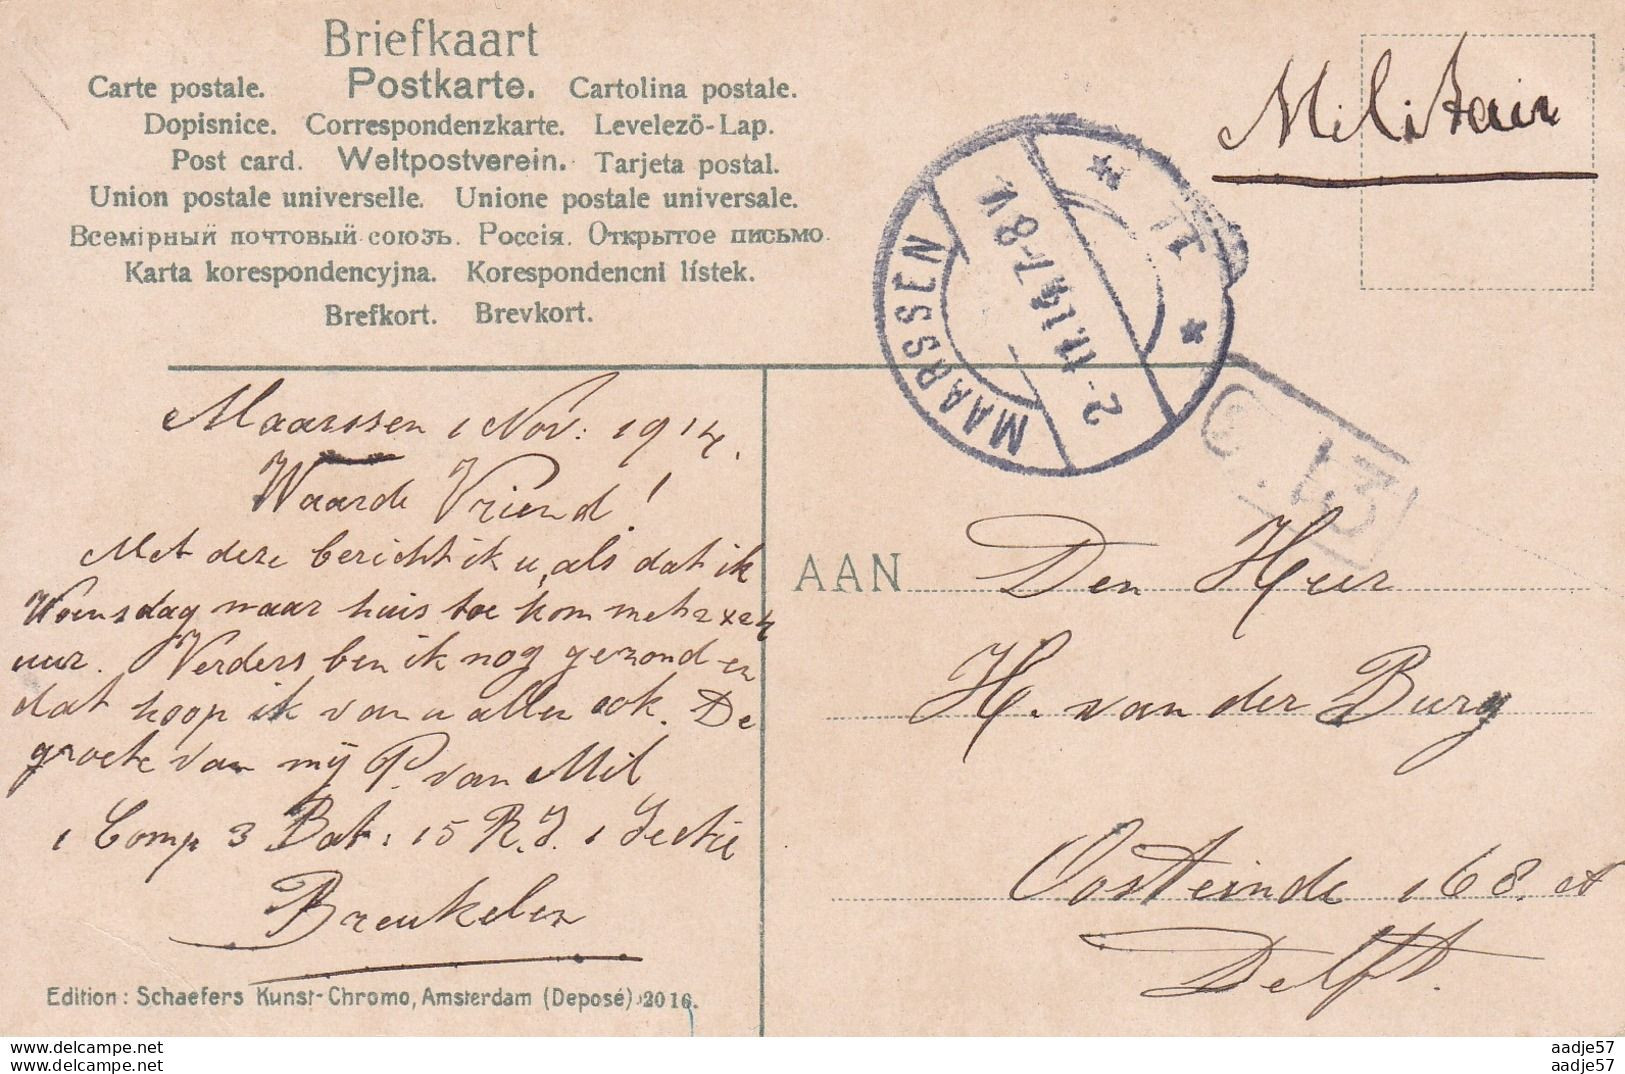 Briefkaart
Carte postale. Postkarte. Cartolina postale.
Dopisnice. Correspondenzkarte. Levelező-Lap.
Post card. Weltpostverein. Tarjeta postal.
Union postale universelle. Unione postale universale.
Всемiрный почтовый союзъ. Россiя. Открытое письмо.
Karta korespondencyjna. Korespondencni lístek.
Brefkort. Brevkort.
Militair
MAARSSEN
2-11.14 7-8 V
Maarssen 1 Nov: 1914.
Waarde Vriend!
Met deze bericht ik u, als dat ik
Woensdag naar huis toe kom met 2 x 24
uur. Verders ben ik nog gezond en
dat hoop ik van u allen ook. De
groete van mij P. van Mil
1 Comp 3 Bat: 15 R.I. 1 Sectie
Breukelen
AAN Den Heer
H. van der Burg
Oosteinde 168. A
Delft.
Edition: Schaefers Kunst-Chromo, Amsterdam (Deposé) 2016.
www.delcampe.net
www.delcampe.net
aadje57
aadje57